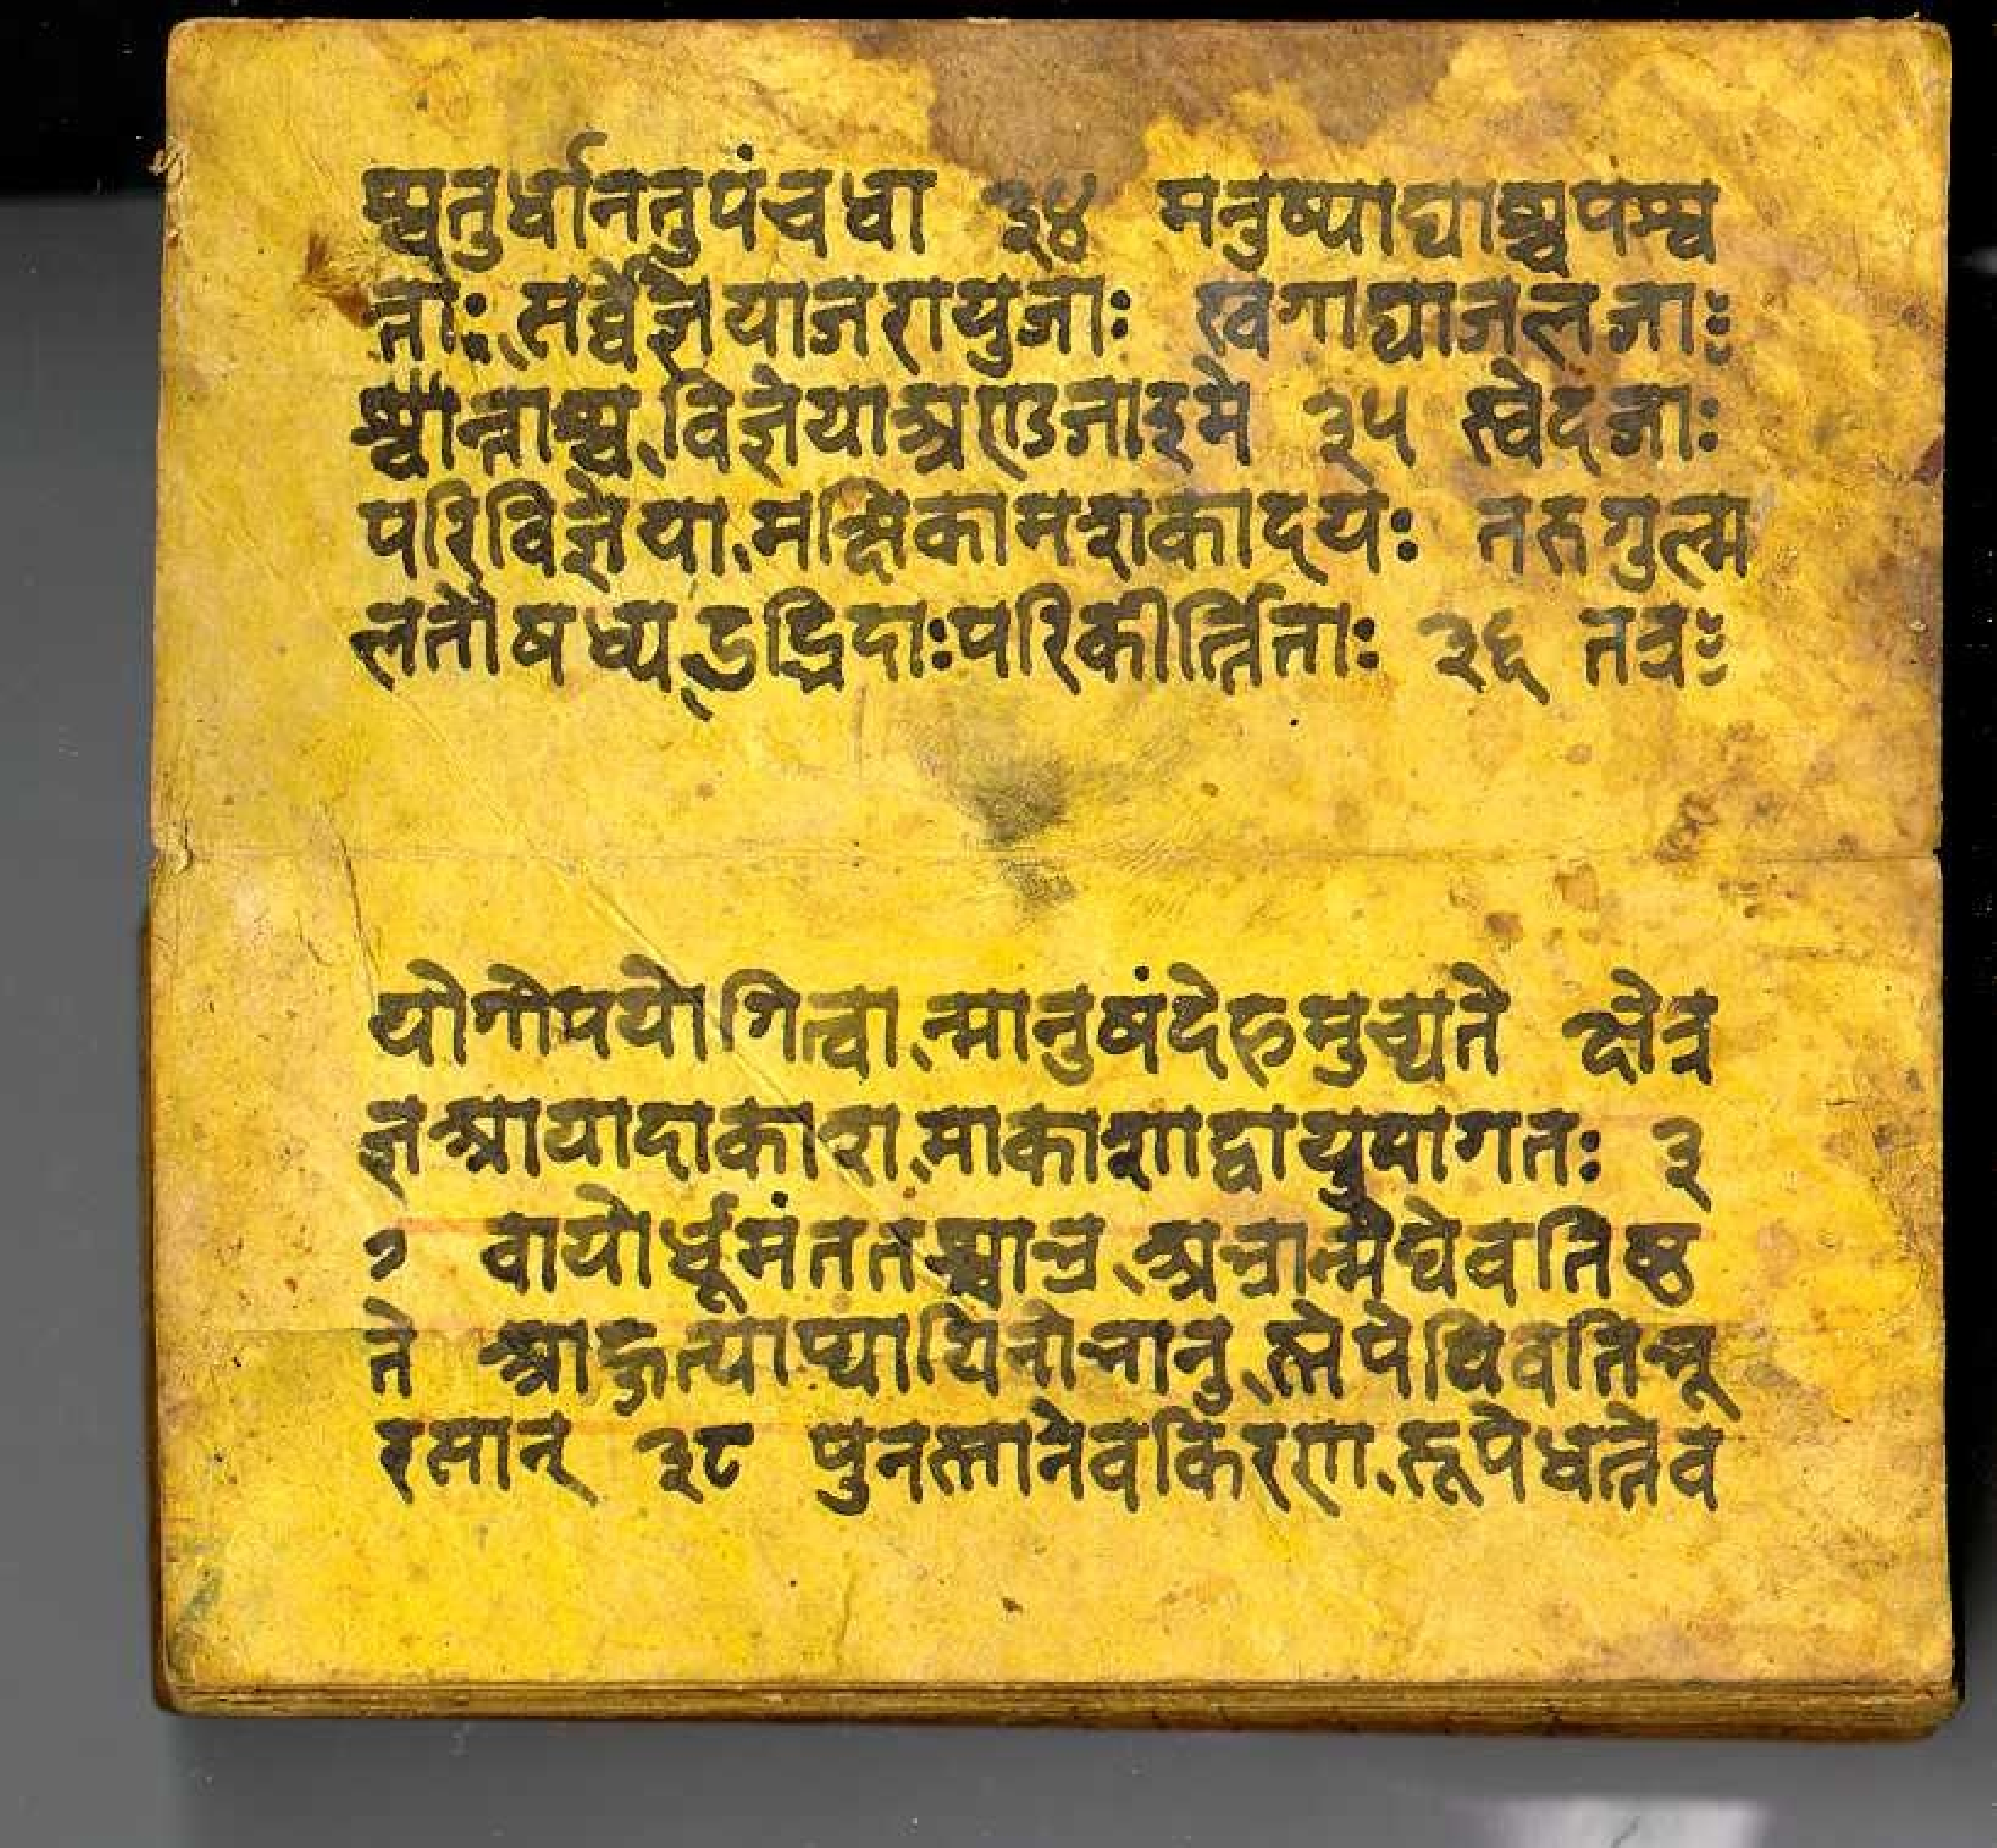 श्चतुर्धानतुपंचधा ३४ मनुष्याद्याश्चपश्व
ताः सर्व्वेज्ञेयाजरायुजाः खगाद्याजलजाः
श्चान्नाश्च विज्ञेयाअण्डजाइमे ३५ स्वेदजाः
परिविज्ञेया मक्षिकामशकादयः तरुगुल्म
लतौषध्य उद्भिदाःपरिकीर्त्तिताः ३६ तत्रः
योगोपयोगित्वा न्मानुषंदेहमुच्यते क्षेत्र
ज्ञआयादाकाशा माकाशाद्वायुमागतः ३
७ वायोर्धूमंततश्चाभ्र अभ्रान्मेघेवतिष्ठ
ते आहुत्याप्यायितोभानु स्तेपेपिवतिभू
रसान् ३८ पुनस्तानेवकिरण रूपेधत्तेव